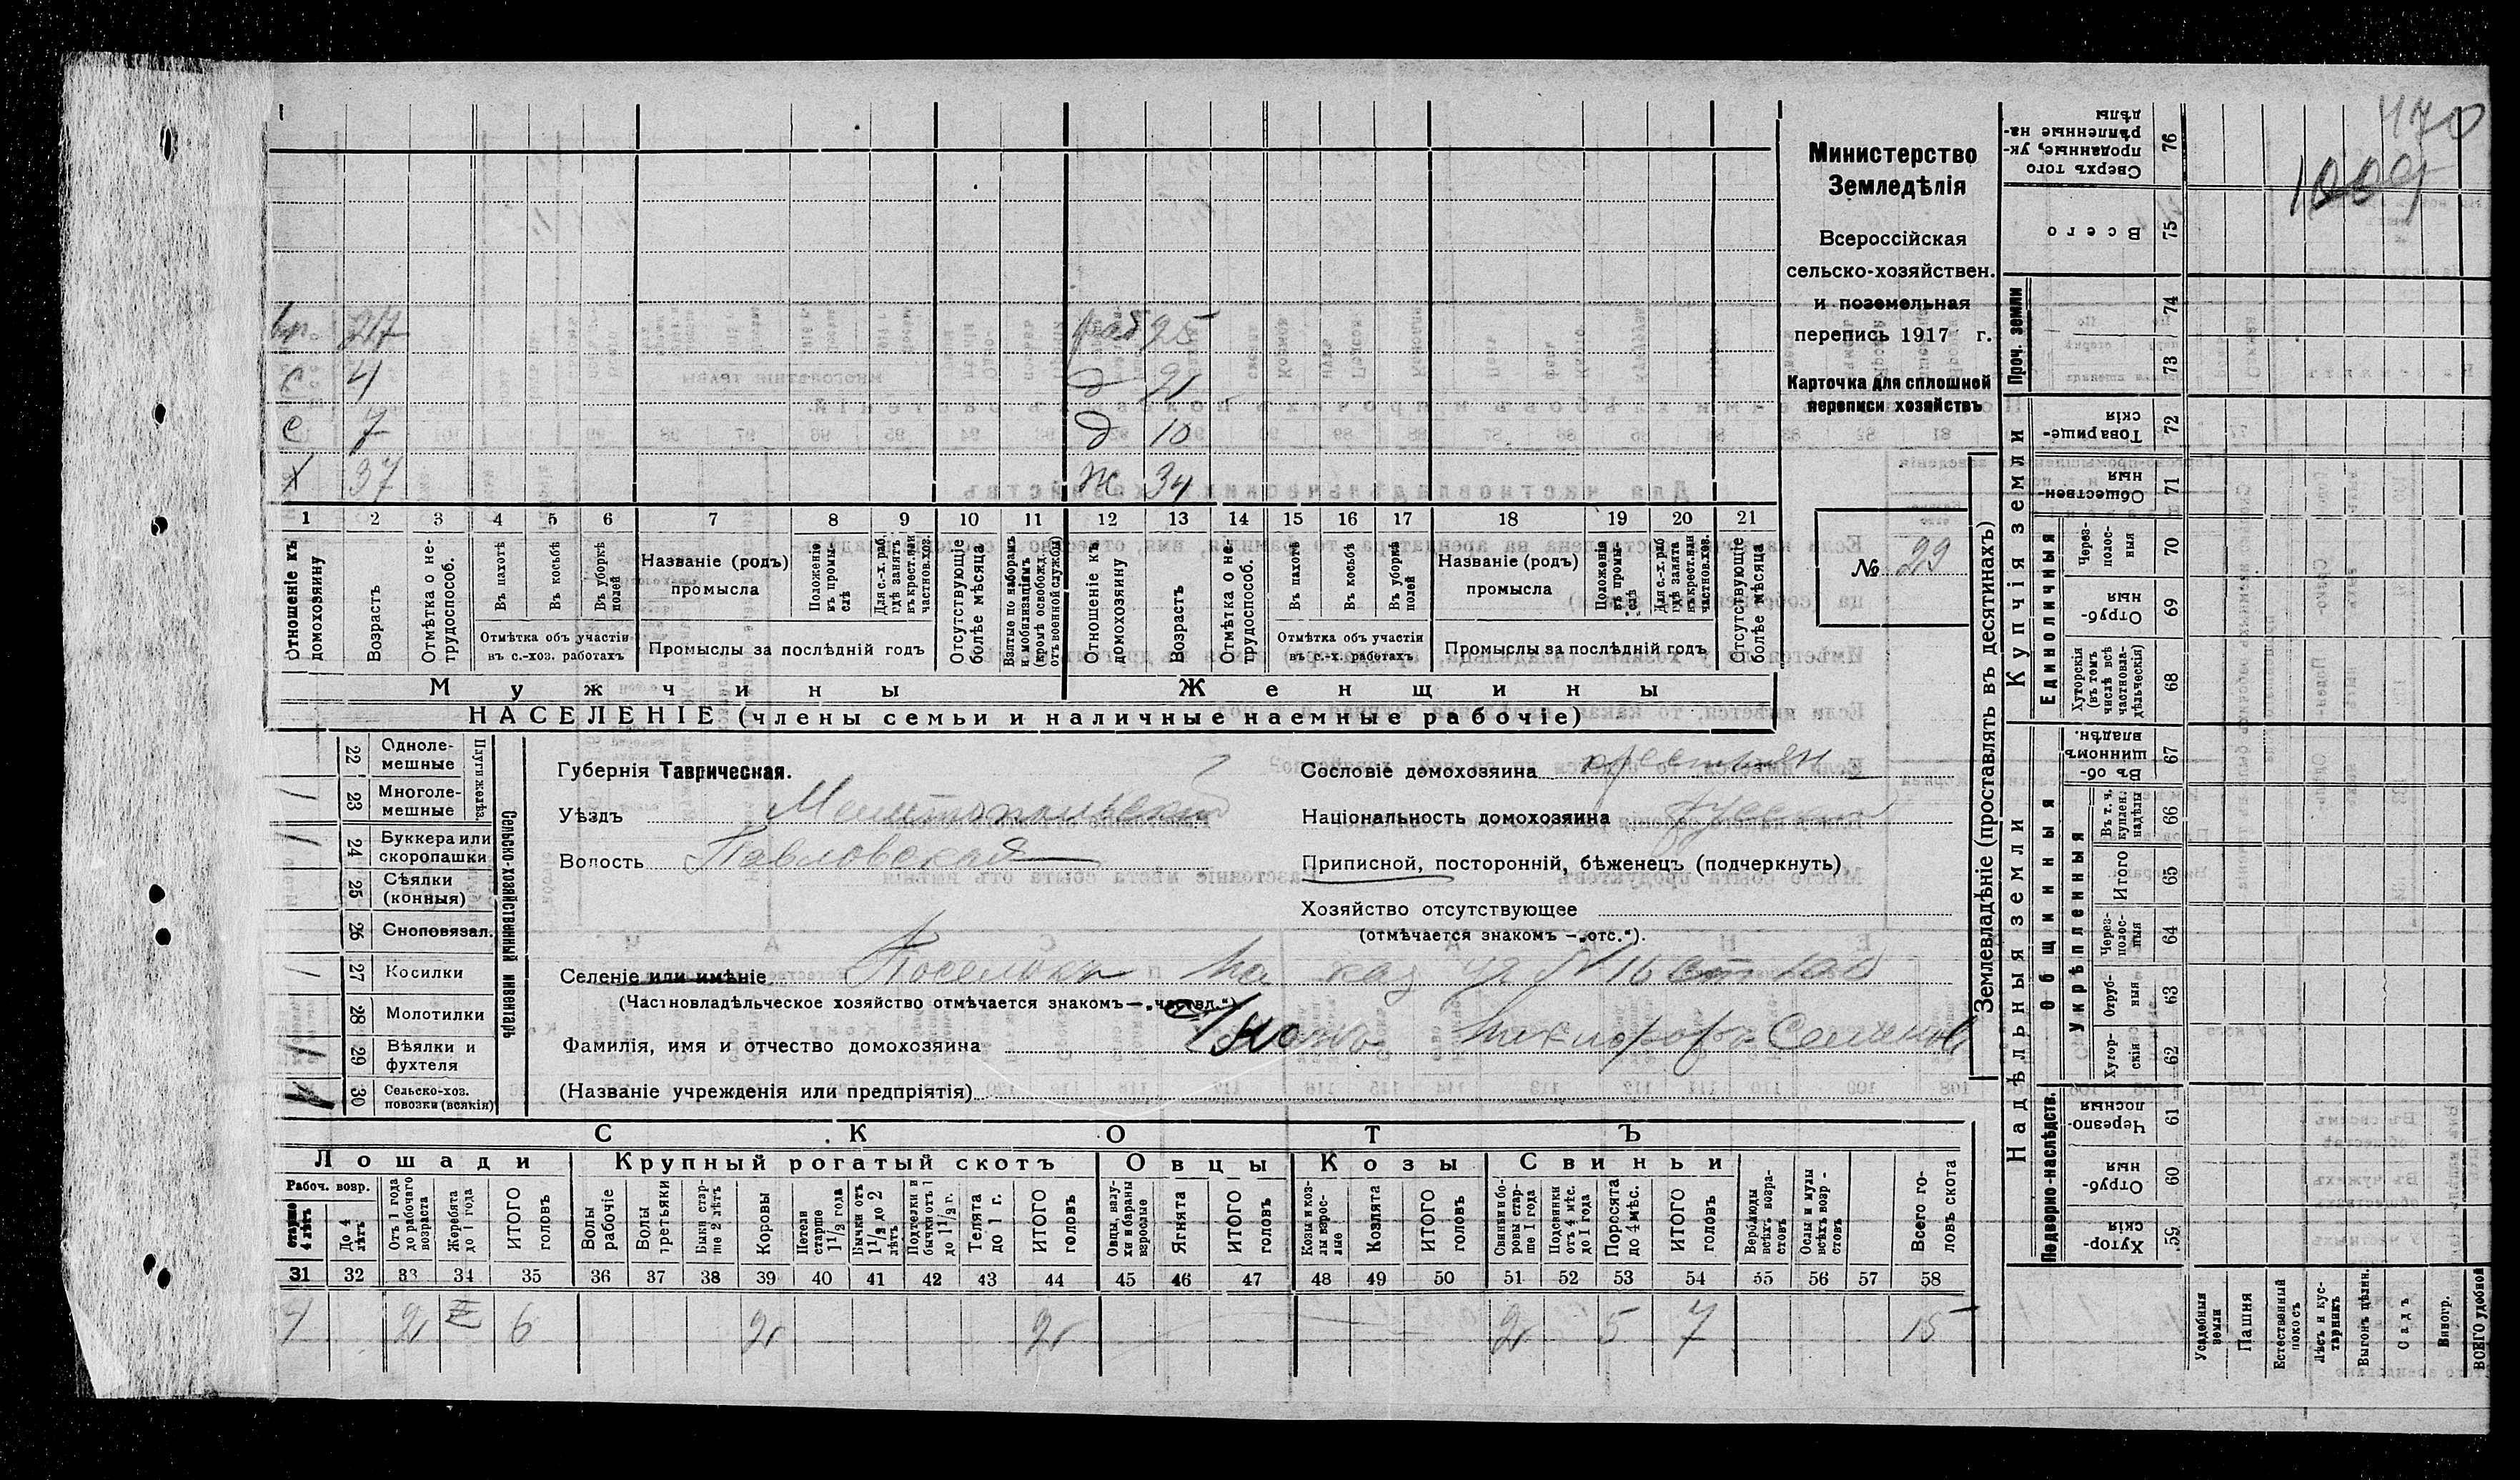 470
Министерство
Земледѣлія
Всероссійская
сельско-хозяйствен.
и поземельная
перепись 1917 г.
Карточка для сплошной
переписи хозяйствъ
№ 29
27 25
с 4 д
с 7 д 10
х 37 ж 34
1 2 3 4 5 6 7 8 9 10 11 12 13 14 15 16 17 18 19 20 21
Отношеніе къ домохозяину
Возрастъ
Отмѣтка о не-трудоспособ.
Въ пахотѣ
Въ косьбѣ
Въ уборкѣ полей
Отмѣтка объ участіи въ с.-хоз. работахъ
Названіе (родъ) промысла
Положеніе въ промы-слѣ
Для с.-х. раб. гдѣ занятъ въ крест. или частнов. хоз.
Промыслы за послѣдній годъ
Отсутствующіе болѣе мѣсяца
Взятые по наборамъ и мобилизаціямъ (кромѣ освобожд. отъ военной службы)
Отношеніе къ домохозяину
Возрастъ
Отмѣтка о не-трудоспособ.
Въ пахотѣ
Въ косьбѣ
Въ уборкѣ полей
Отмѣтка объ участіи въ с.-х. работахъ
Названіе (родъ) промысла
Положенія въ промы-слѣ
Для с.-х. раб гдѣ занята въ крест. или частнов. хоз.
Промыслы за послѣдній годъ
Отсутствующіе болѣе мѣсяца
Мужчины Женщины
НАСЕЛЕНІЕ (члены семьи и наличные наемные рабочіе)
Губернія Таврическая.
Уѣздъ Мелитопольскій
Волость Павловская
Сословіе домохозяина крестьян.
Національность домохозяина русскій
Приписной, посторонній, бѣженецъ (подчеркнуть)
Хозяйство отсутствующее
(отмѣчается знакомъ — „отс.").
Селеніе или имѣніе Поселокъ на каз уч № 16
(Частновладѣльческое хозяйство отмѣчается знакомъ — „частвл.")
Фамилія, имя и отчество домохозяина Никифоръ Семенов
(Названіе учрежденія или предпріятія)
Сельско-хозяйственный инвентарь
Плуги желѣз.
22 Одноле-мешные
23 Многоле-мешные
24 Буккера или скоропашки
25 Сѣялки (конныя)
26 Сноповязал.
27 Косилки
28 Молотилки
29 Вѣялки и фухтеля
30 Сельско-хоз. повозки (всякія)
СКОТЪ
Лошади Крупный рогатый скотъ Овцы Козы Свиньи
Рабоч. возр.
старше 4 лѣтъ
До 4 лѣтъ
Отъ 1 года до рабочаго возраста
Жеребята до 1 года
ИТОГО головъ
Волы рабочіе
Волы третьяки
Быки стар-ше 2 лѣтъ
Коровы
Нетели старше 1 1/2 года
Бычки отъ 1 1/2 до 2 лѣтъ
Подтелки и бычки отъ 1 до 1 1/2 г.
Телята до 1 г.
ИТОГО головъ
Овцы, валу-хи и бараны взрослые
Ягнята
ИТОГО головъ
Козы и коз-лы взрос-лые
Козлята
ИТОГО головъ
Свиньи и бо-ровы стар-ше 1 года
Подсвинки отъ 4 мѣс. до 1 года
Поросята до 4 мѣс.
ИТОГО головъ
Верблюды всѣхъ возра-стовъ
Ослы и мулы всѣхъ возр-стовъ
Всего го-ловъ скота
31 32 33 34 35 36 37 38 39 40 41 42 43 44 45 46 47 48 49 50 51 52 53 54 55 56 57 58
4 2 6 2 2 2 5 7 15
Землевладѣніе (проставлять въ десятинахъ)
Надѣльныя земли Купчія земли Проч. земли
Подворно-наслѣдств. Общинныя Укрѣпленныя Единоличныя
76 Сверхъ того проданные, ук-рѣпленные на-дѣлы
75 Всего
74
73
72 Товарище-скія
71 Обществен-ныя
70 Через-полос-ныя
69 Отруб-ныя
68 Хуторскія (въ томъ числѣ всѣ частновла-дѣльческія)
67 Въ об-щинномъ владѣн.
66 Въ т. ч. куплен. надѣлы
65 Итого
64 Через-полос-ныя
63 Отруб-ныя
62 Хутор-скія
61 Черезпо-лосныя
60 Отруб-ныя
59 Хутор-скія
Усадебныя земли
Пашня
Естественный покосъ
Лѣсъ и кус-тарникъ
Выгонъ цѣлин.
Садъ
Виногр.
ВСЕГО удобной